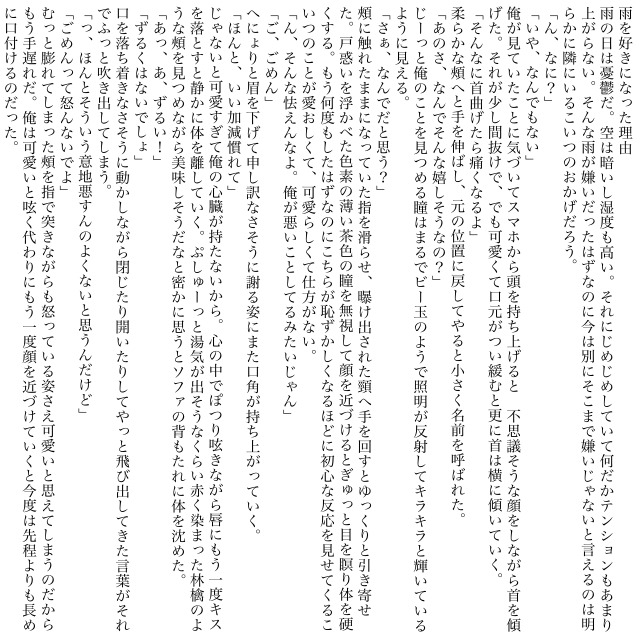 雨を好きになった理由
雨の日は憂鬱だ。空は暗いし湿度も高い。それにじめじめしていて何だかテンションもあまり
上がらない。そんな雨が嫌いだったはずなのに今は別にそこまで嫌いじゃないと言えるのは明
らかに隣にいるこいつのおかげだろう。
「ん、なに？」
「いや、なんでもない」
俺が見ていたことに気づいてスマホから頭を持ち上げると　不思議そうな顔をしながら首を傾
げた。それが少し間抜けで、でも可愛くて口元がつい緩むと更に首は横に傾いていく。
「そんなに首曲げたら痛くなるよ」
柔らかな頬へと手を伸ばし、元の位置に戻してやると小さく名前を呼ばれた。
「あのさ、なんでそんな嬉しそうなの？」
じーっと俺のことを見つめる瞳はまるでビー玉のようで照明が反射してキラキラと輝いている
ように見える。
「さぁ、なんでだと思う？」
頬に触れたままになっていた指を滑らせ、曝け出された頸へ手を回すとゆっくりと引き寄せ
た。戸惑いを浮かべた色素の薄い茶色の瞳を無視して顔を近づけるとぎゅっと目を瞑り体を硬
くする。もう何度もしたはずなのにこちらが恥ずかしくなるほどに初心な反応を見せてくるこ
いつのことが愛おしくて、可愛らしくて仕方がない。
「ん、そんな怯えんなよ。俺が悪いことしてるみたいじゃん」
「ご、ごめん」
へにょりと眉を下げて申し訳なさそうに謝る姿にまた口角が持ち上がっていく。
「ほんと、いい加減慣れて」
じゃないと可愛すぎて俺の心臓が持たないから。心の中でぽつり呟きながら唇にもう一度キス
を落とすと静かに体を離していく。ぷしゅーっと湯気が出そうなくらい赤く染まった林檎のよ
うな頬を見つめながら美味しそうだなと密かに思うとソファの背もたれに体を沈めた。
「あっ、あ、ずるい！」
「ずるくはないでしょ」
口を落ち着きなさそうに動かしながら閉じたり開いたりしてやっと飛び出してきた言葉がそれ
でふっと吹き出してしまう。
「っ、ほんとそういう意地悪すんのよくないと思うんだけど」
「ごめんって怒んないでよ」
むっと膨れてしまった頬を指で突きながらも怒っている姿さえ可愛いと思えてしまうのだから
もう手遅れだ。俺は可愛いと呟く代わりにもう一度顔を近づけていくと今度は先程よりも長め
に口付けるのだった。